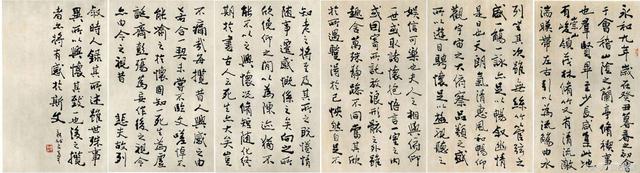 永和九年歲在癸丑暮春之初會
于會稽山陰之蘭亭修禊事
也群賢畢至少長咸集此地
有崇山峻領茂林修竹又有清流激
湍映帶左右引以為流觴曲水
列坐其次雖無絲竹管弦之
盛一觴一詠亦足以暢敘幽情
是日也天朗氣清惠風和暢仰
觀宇宙之大俯察品類之盛
所以遊目騁懷足以極視聽之
娛信可樂也夫人之相與俯仰
一世或取諸懷抱悟言一室之內
或因寄所託放浪形骸之外雖
趣舍萬殊靜躁不同當其欣
於所遇暫得於己快然自足不
知老之將至及其所之既惓情
隨事遷感慨係之矣向之所
欣俛仰之間以為陳迹猶不
能不以之興懷況修短隨化終
期於盡古人云死生亦大矣豈
不痛哉每攬昔人興感之由
若合一契未嘗不臨文嗟悼不
能喻之於懷固知一死生為虛
誕齊彭殤為妄作後之視今
亦由今之視昔 悲夫故列
敘時人錄其所述雖世殊事
異所以興懷其致一也後之攬
者亦將有感於斯文